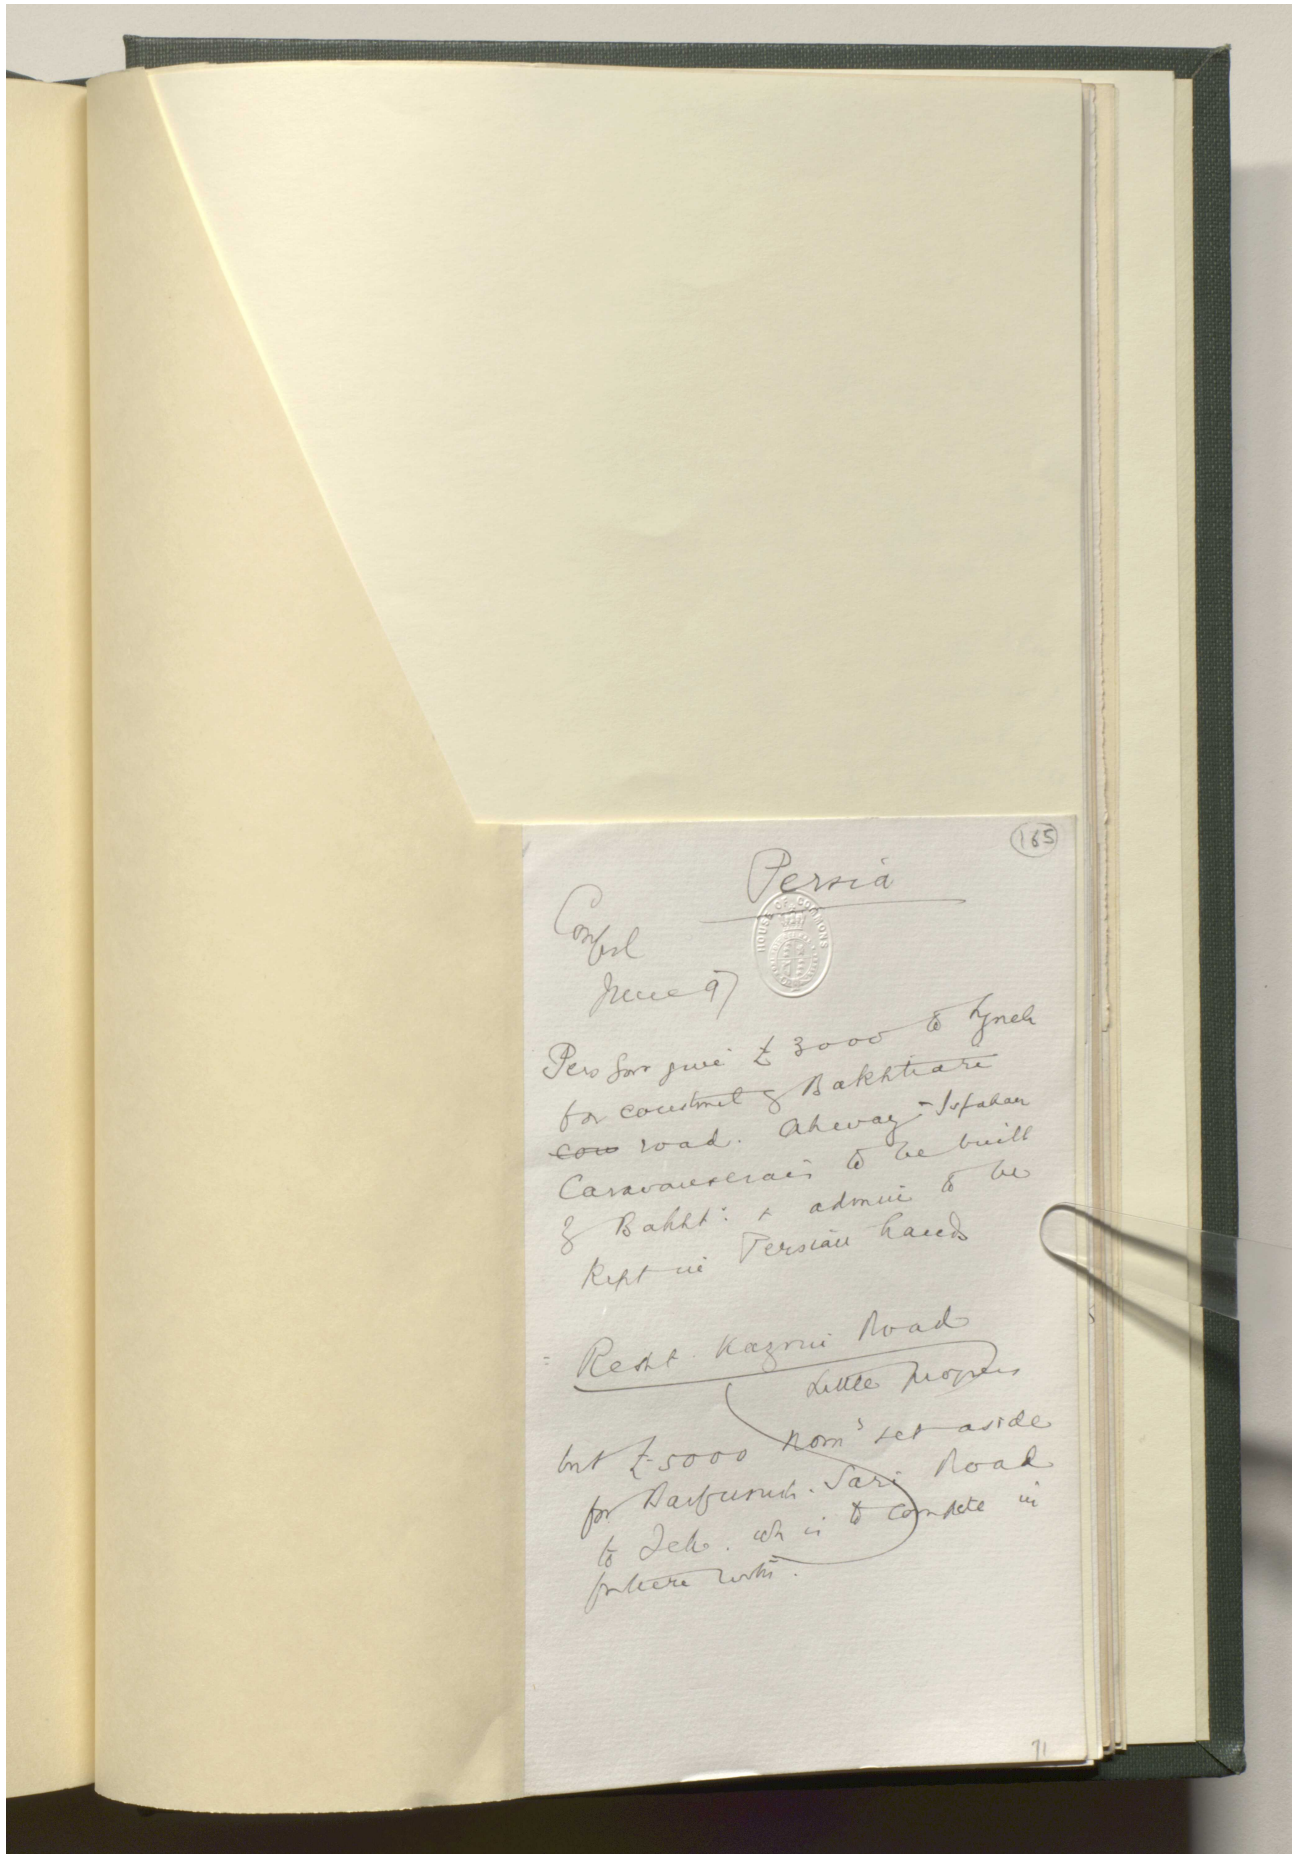 165
Persia
HOUSE OF COMMONS
Confl
June 97
Pers Gov give £3000 to Lynch
for construct of Bakhtiari
con road. Ahwaz - Isfahan
Caravanserais to be built
by Bakht: & admin to be
kept in Persian hands
Resht. Kazvin Road
Little progress
but £5000 set aside
for Barfurush. Sari Road
to Teh. wh is to compete in
future with.
71